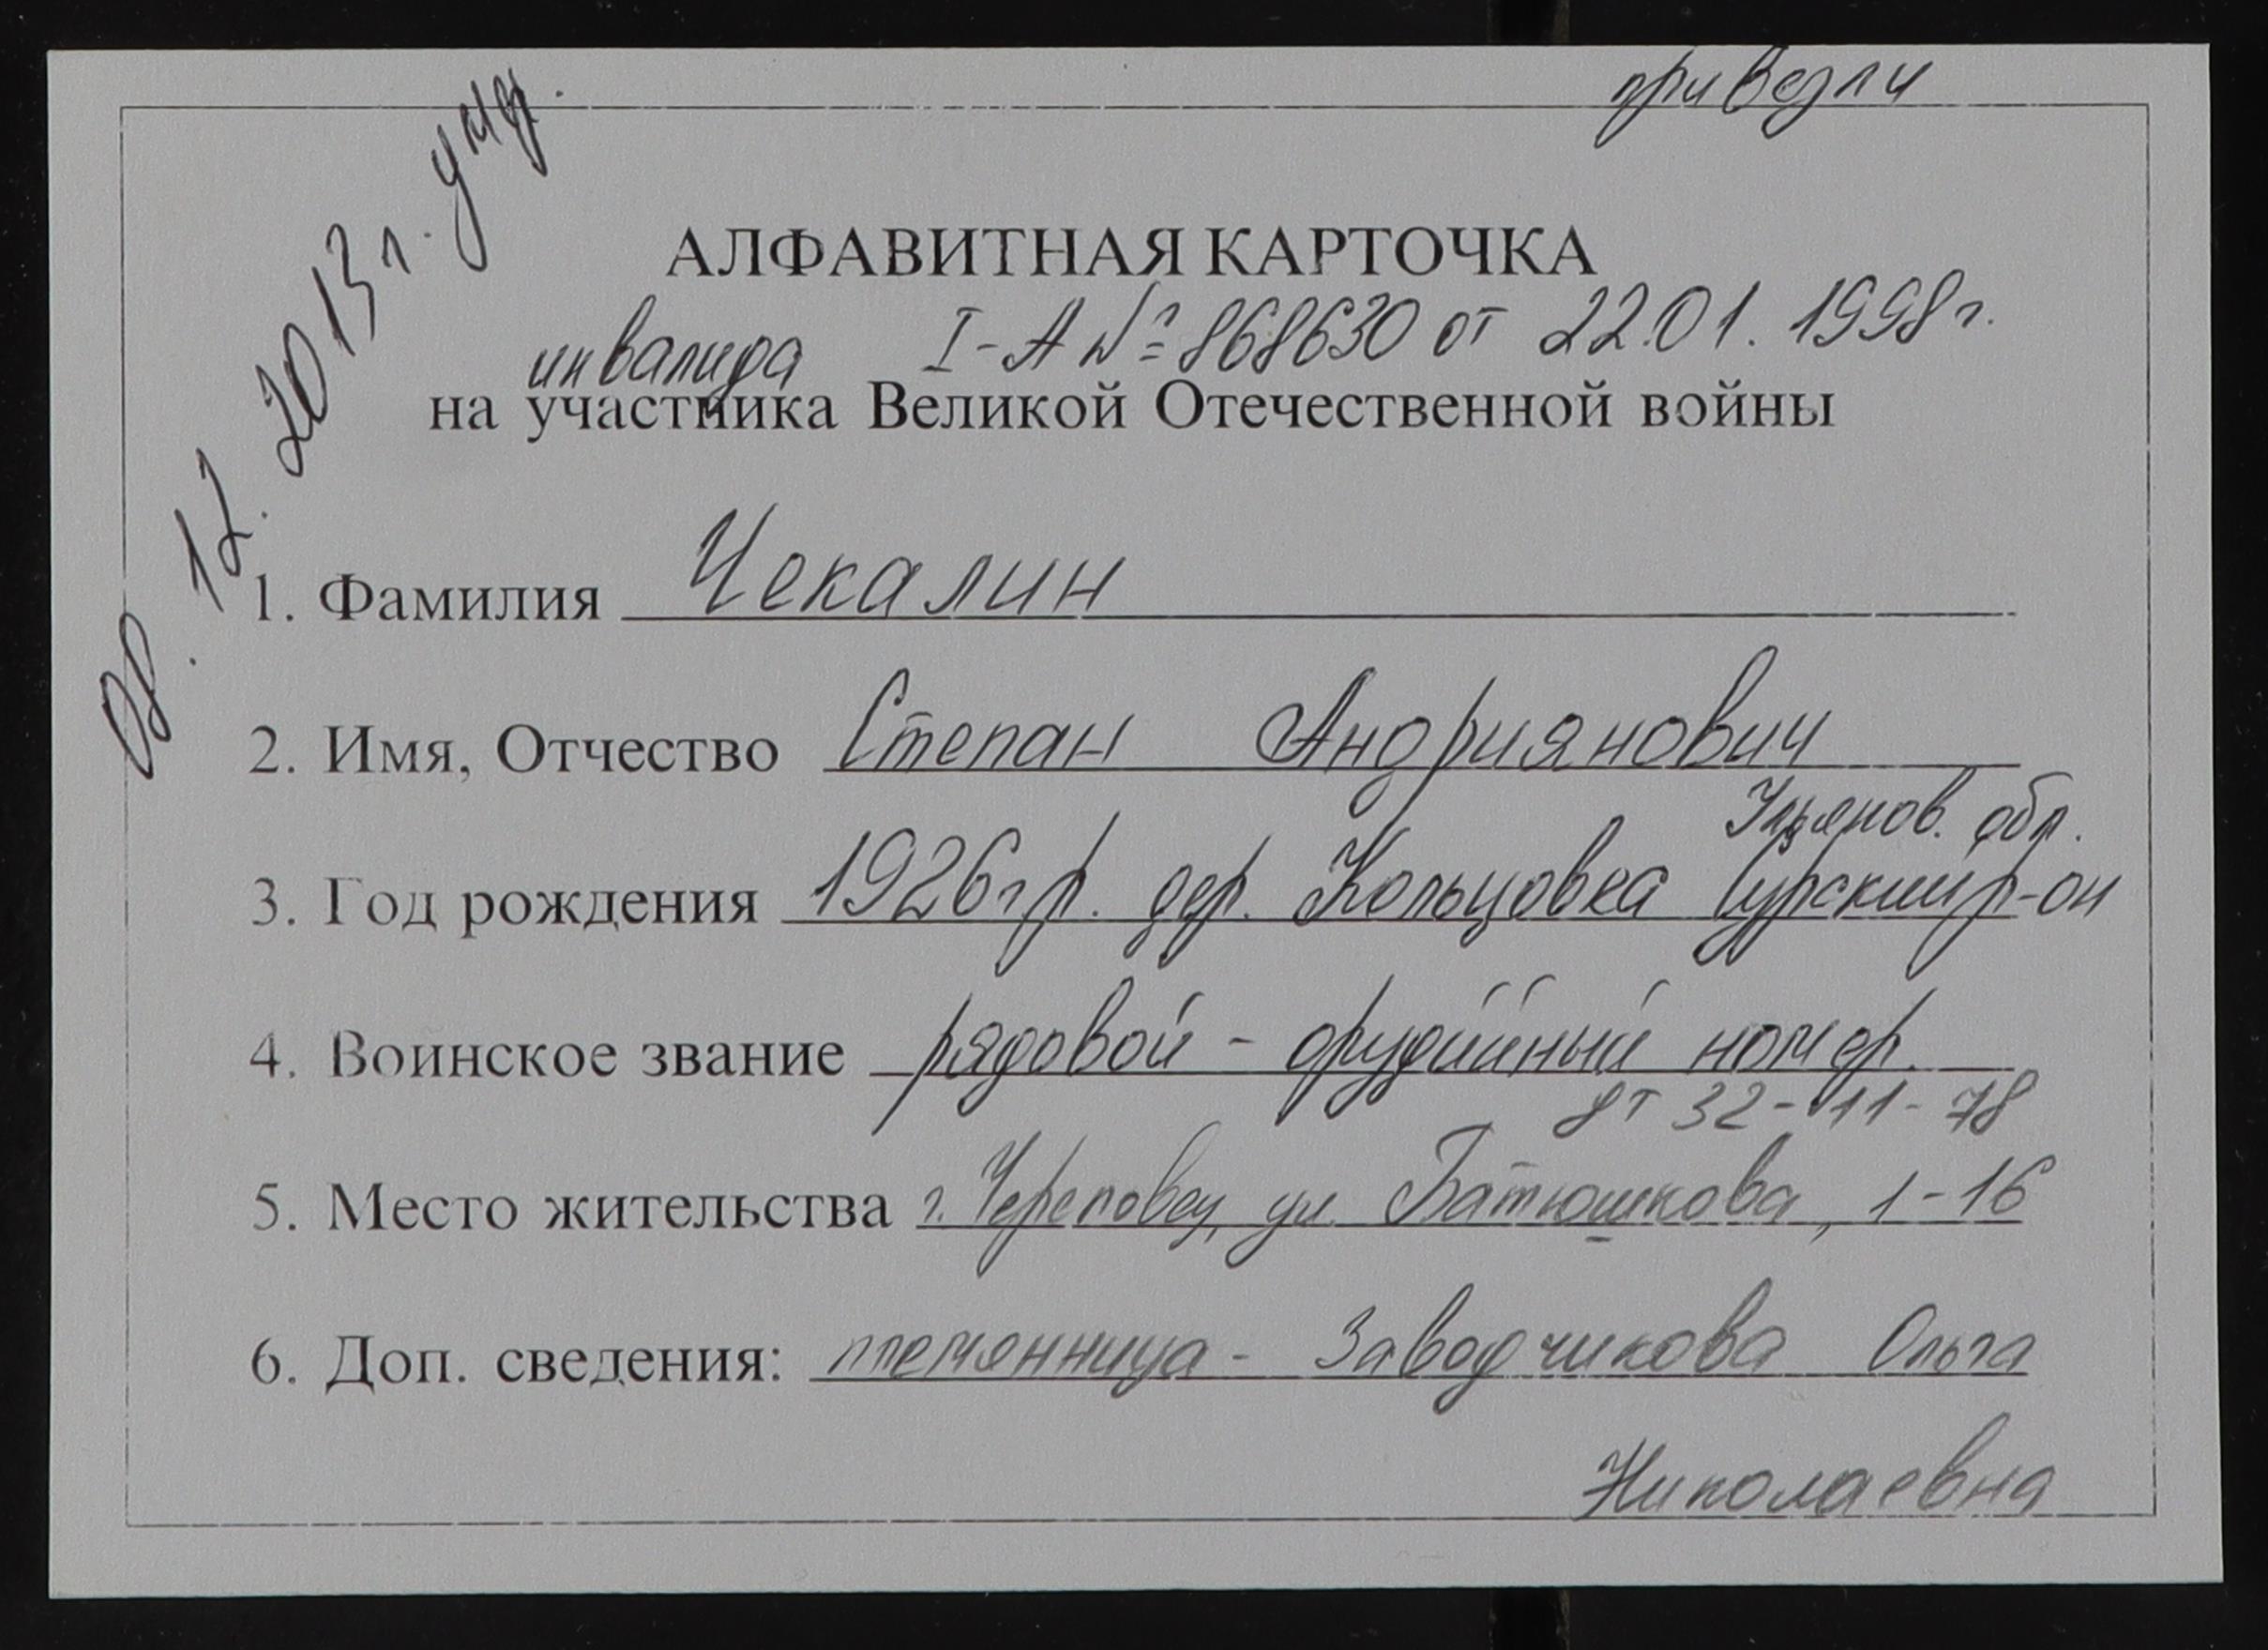 привезли
АЛФАВИТНАЯ КАРТОЧКА
инвалида I-А №868630 от 22.01.1998г.
на участника Великой Отечественной войны
12. 2013г. умер.
1. Фамилия Чекалин
2. Имя, Отчество Степан Андриянович
Ульянов. обл.
3. Год рождения 1926г.р. дер. Кольцовка Сурский р-он
4. Воинское звание рядовой - орудийный номер.
дт 32-11-78
5. Место жительства г. Череповец, ул. Батюшкова, 1-16
6. Доп. сведения: племянница - Заводчикова Ольга
Николаевна